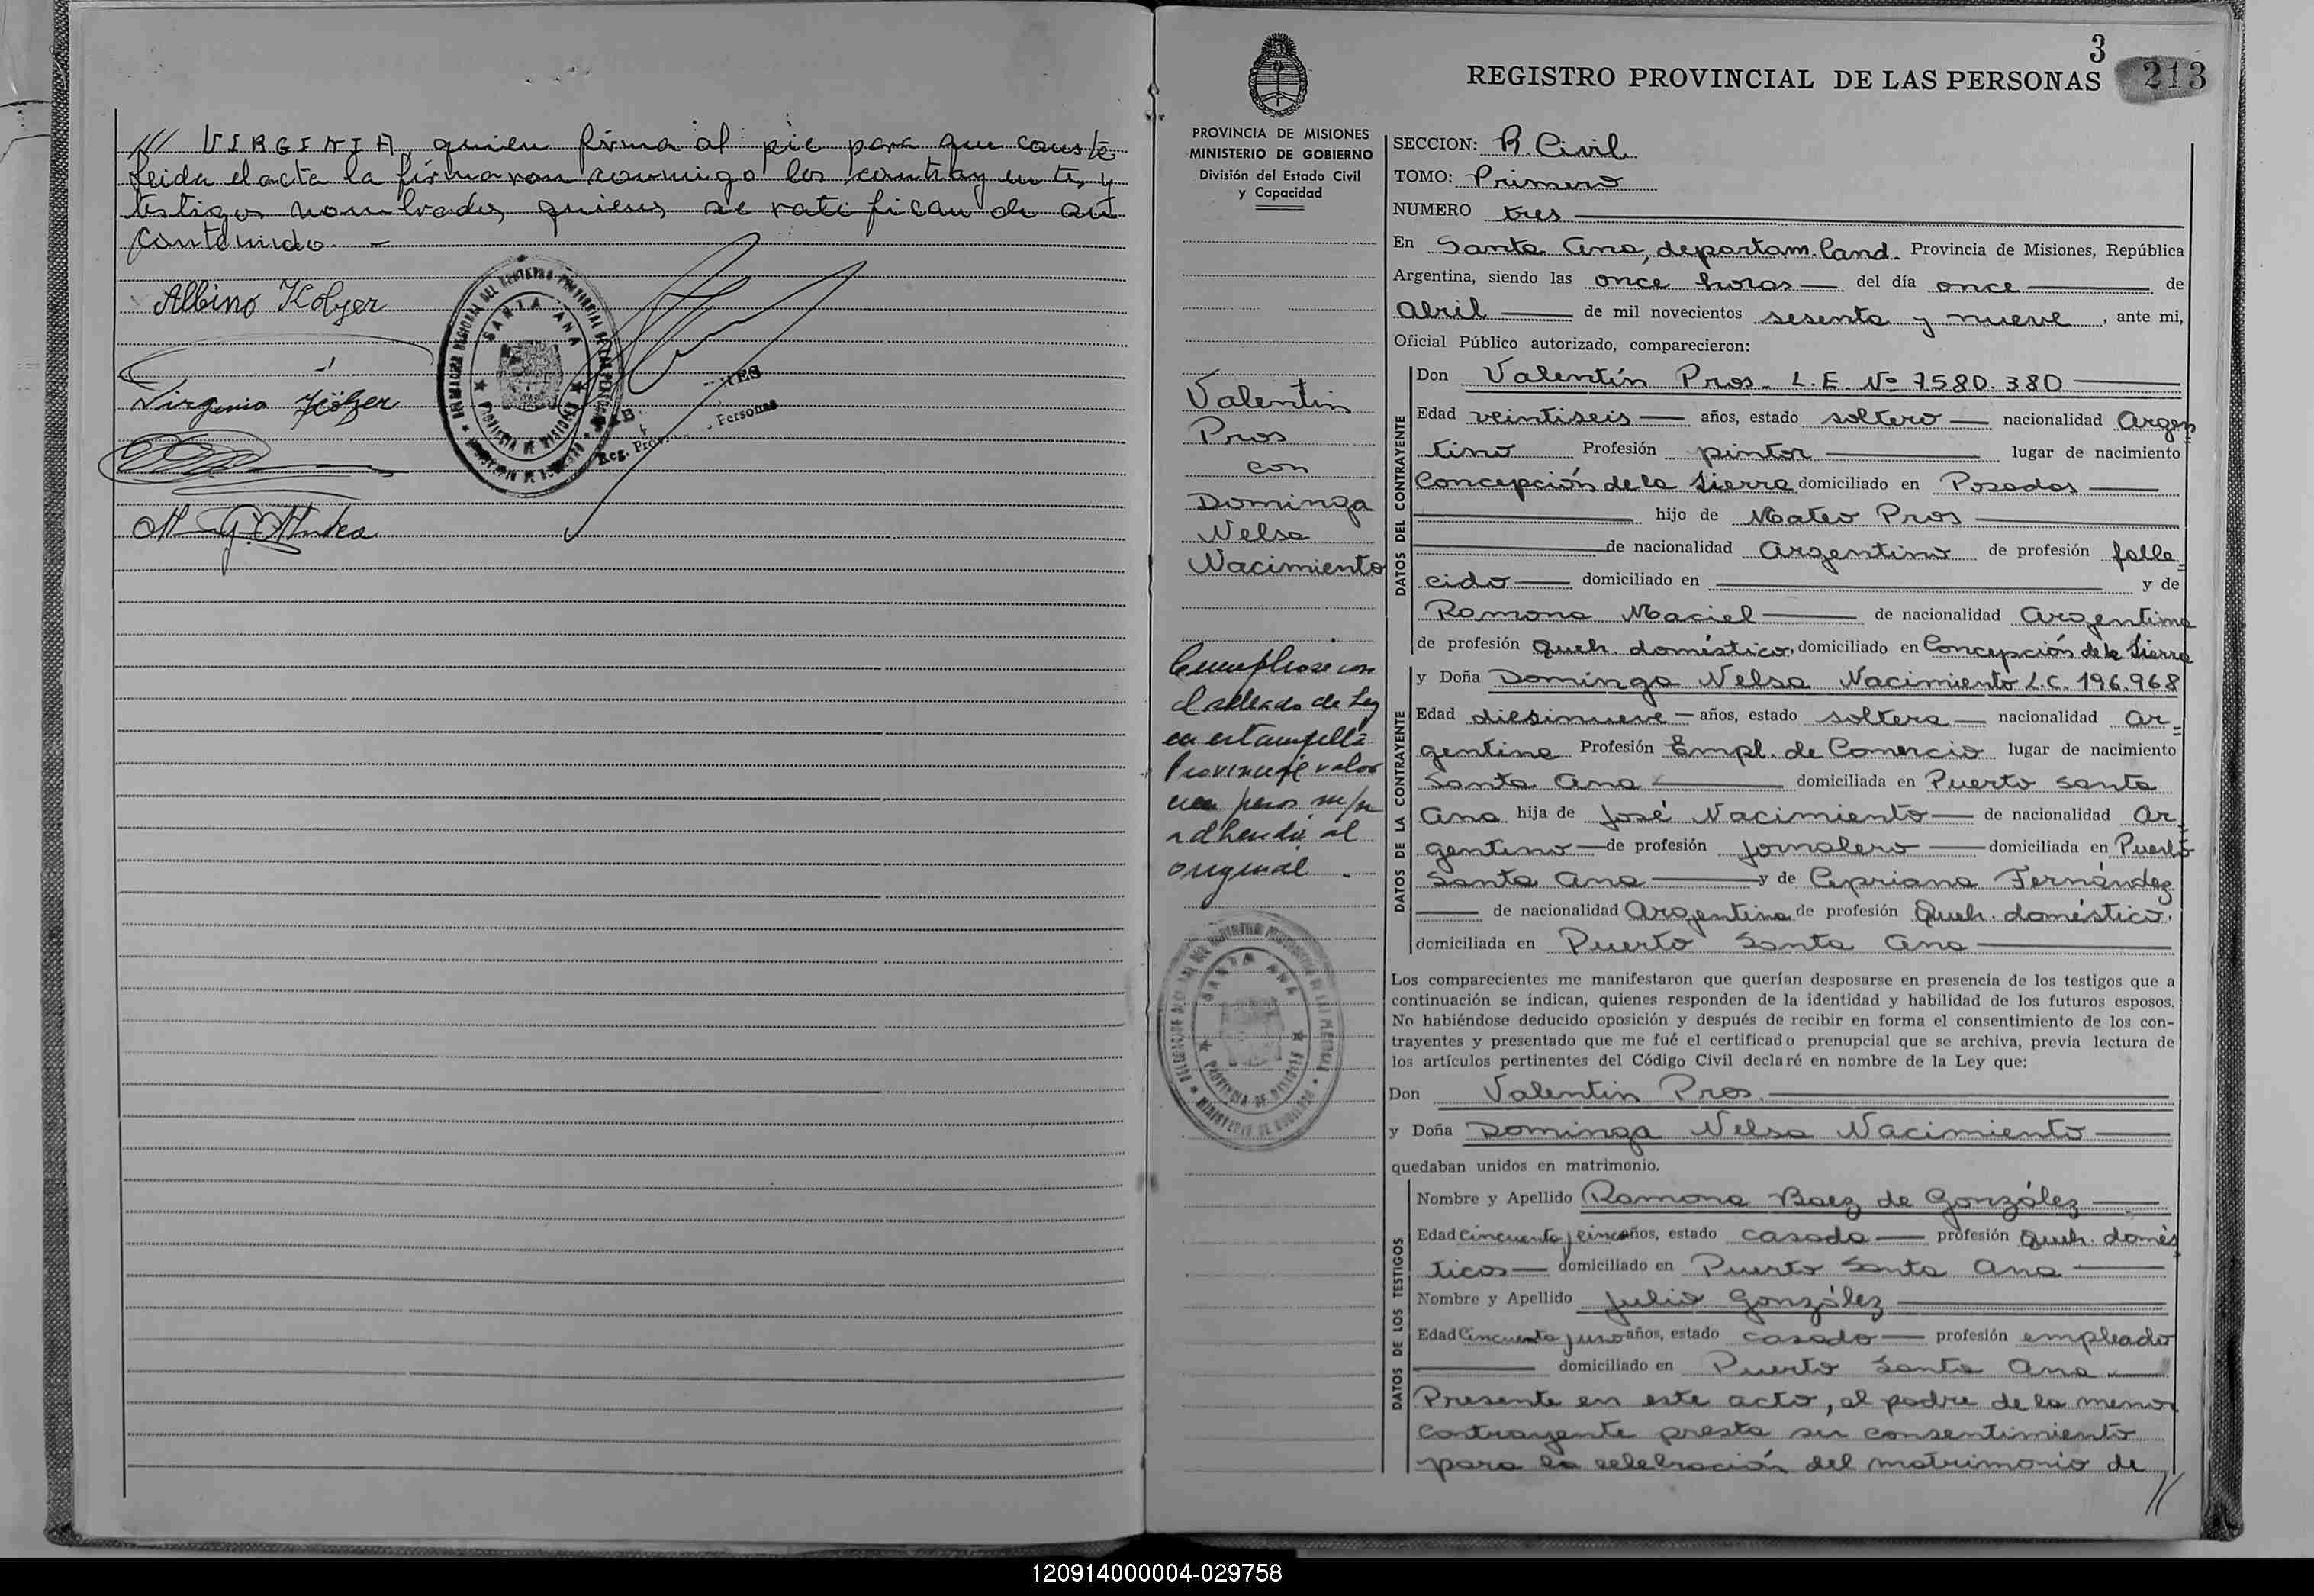 /// VIRGINIA quien firma al pie para que conste
leida el acta la firmaron conmigo los contrayentes y
testigos nombrados, quienes se ratifican de su
contenido. -
Albino Kolzer
Virginia Kölzer
SANTA ANA
PROVINCIA DE MISIONES
Reg. Prov. Personas
3
REGISTRO PROVINCIAL DE LAS PERSONAS 213
PROVINCIA DE MISIONES
MINISTERIO DE GOBIERNO
División del Estado Civil
y Capacidad
Valentín
Pros
con
Dominga
Nelsa
Nacimiento
Cumplase con
el sellado de Ley
en estampilla
Provincial valor
cien pesos m/n
adherida al
original .
SANTA ANA
PROVINCIA DE MISIONES
MINISTERIO DE GOBIERNO
SECCION: R. Civil
TOMO: Primero
NUMERO tres
En Santa Ana, departam. Cand. Provincia de Misiones, República
Argentina, siendo las once horas — del día once — de
Abril — de mil novecientos sesenta y nueve, ante mi,
Oficial Público autorizado, comparecieron:
DATOS DEL CONTRAYENTE
Don Valentín Pros. L.E. Nº 7580.380 —
Edad veintiseis — años, estado soltero — nacionalidad Argen
tino Profesión pintor — lugar de nacimiento
Concepción de la Sierra domiciliado en Posadas —
— hijo de Mateo Pros —
— de nacionalidad Argentino de profesión falle
cido — domiciliado en — y de
Ramona Maciel — de nacionalidad Argentina
de profesión Queh. doméstico, domiciliado en Concepción de la Sierra
DATOS DE LA CONTRAYENTE
y Doña Dominga Nelsa Nacimiento L.C. 196.968
Edad diesinueve — años, estado soltera — nacionalidad Ar=
gentina Profesión Empl. de Comercio lugar de nacimiento
Santa Ana — domiciliada en Puerto Santa
Ana hija de José Nacimiento — de nacionalidad Ar=
gentino — de profesión jornalero — domiciliada en Puerto
Santa Ana — y de Cipriana Fernández
— de nacionalidad Argentina de profesión Queh. doméstico.
domiciliada en Puerto Santa Ana —
Los comparecientes me manifestaron que querían desposarse en presencia de los testigos que a
continuación se indican, quienes responden de la identidad y habilidad de los futuros esposos.
No habiéndose deducido oposición y después de recibir en forma el consentimiento de los con-
trayentes y presentado que me fué el certificado prenupcial que se archiva, previa lectura de
los artículos pertinentes del Código Civil declaré en nombre de la Ley que:
Don Valentín Pros. —
y Doña Dominga Nelsa Nacimiento —
quedaban unidos en matrimonio.
DATOS DE LOS TESTIGOS
Nombre y Apellido Ramona Baez de González —
Edad Cincuenta y cinco años, estado casada — profesión Queh. domés
ticos — domiciliado en Puerto Santa Ana —
Nombre y Apellido Julio González —
Edad Cincuenta y uno años, estado casado — profesión empleado
— domiciliado en Puerto Santa Ana —
Presente en este acto, el padre de la menor
contrayente presta su consentimiento
para la celebración del matrimonio de
//
120914000004-029758